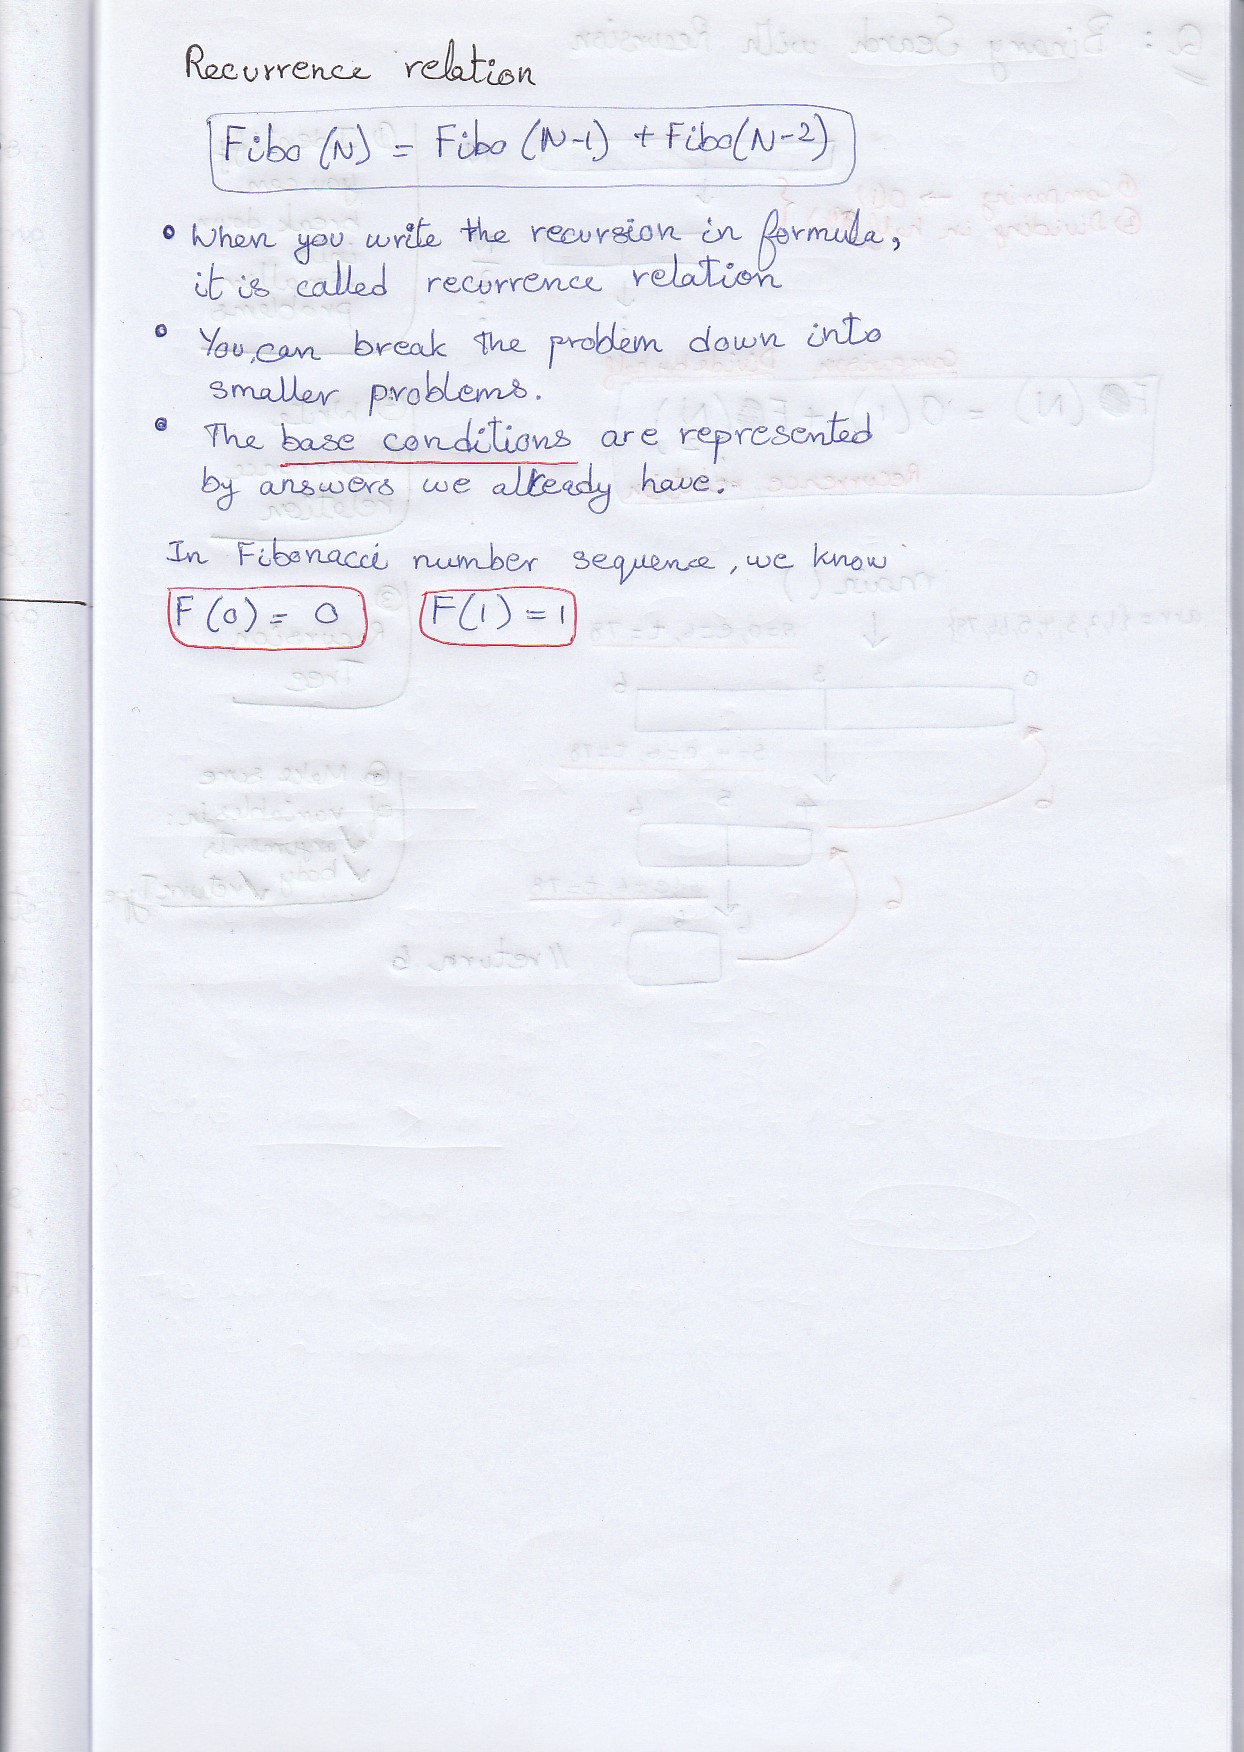 Recurrence relation
Fibo (N) = Fibo (N-1) + Fibo(N-2)
• When you write the recursion in formula,
it is called recurrence relation
• You can break the problem down into
smaller problems.
• The base conditions are represented
by answers we already have.
In Fibonacci number sequence, we know
F(0) = 0 F(1) = 1